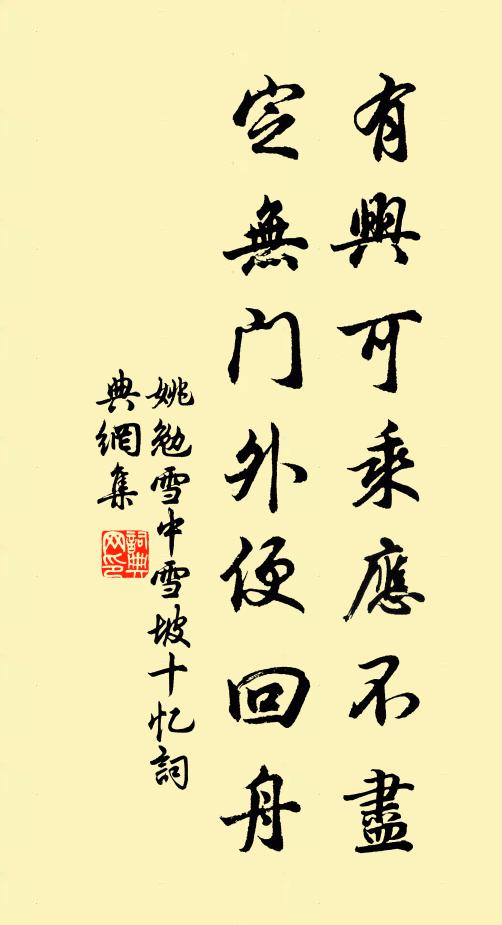 有興可乘應不盡
定無门外便回舟
姚勉雪中雪坡十忆詞
典網集
詞典
网印